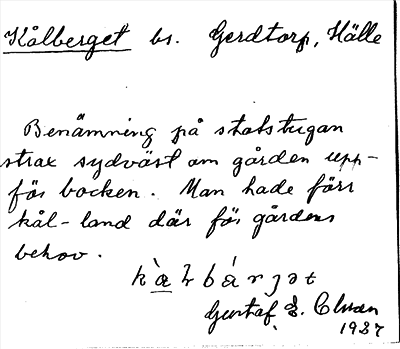 Kålberget bs. Gerdtorp, Hälle
Benämning på statstugan
strax sydväst om gården upp-
för backen. Man hade förr
kål-land där för gårdens
behov.
Gustaf E. Olsson
1937